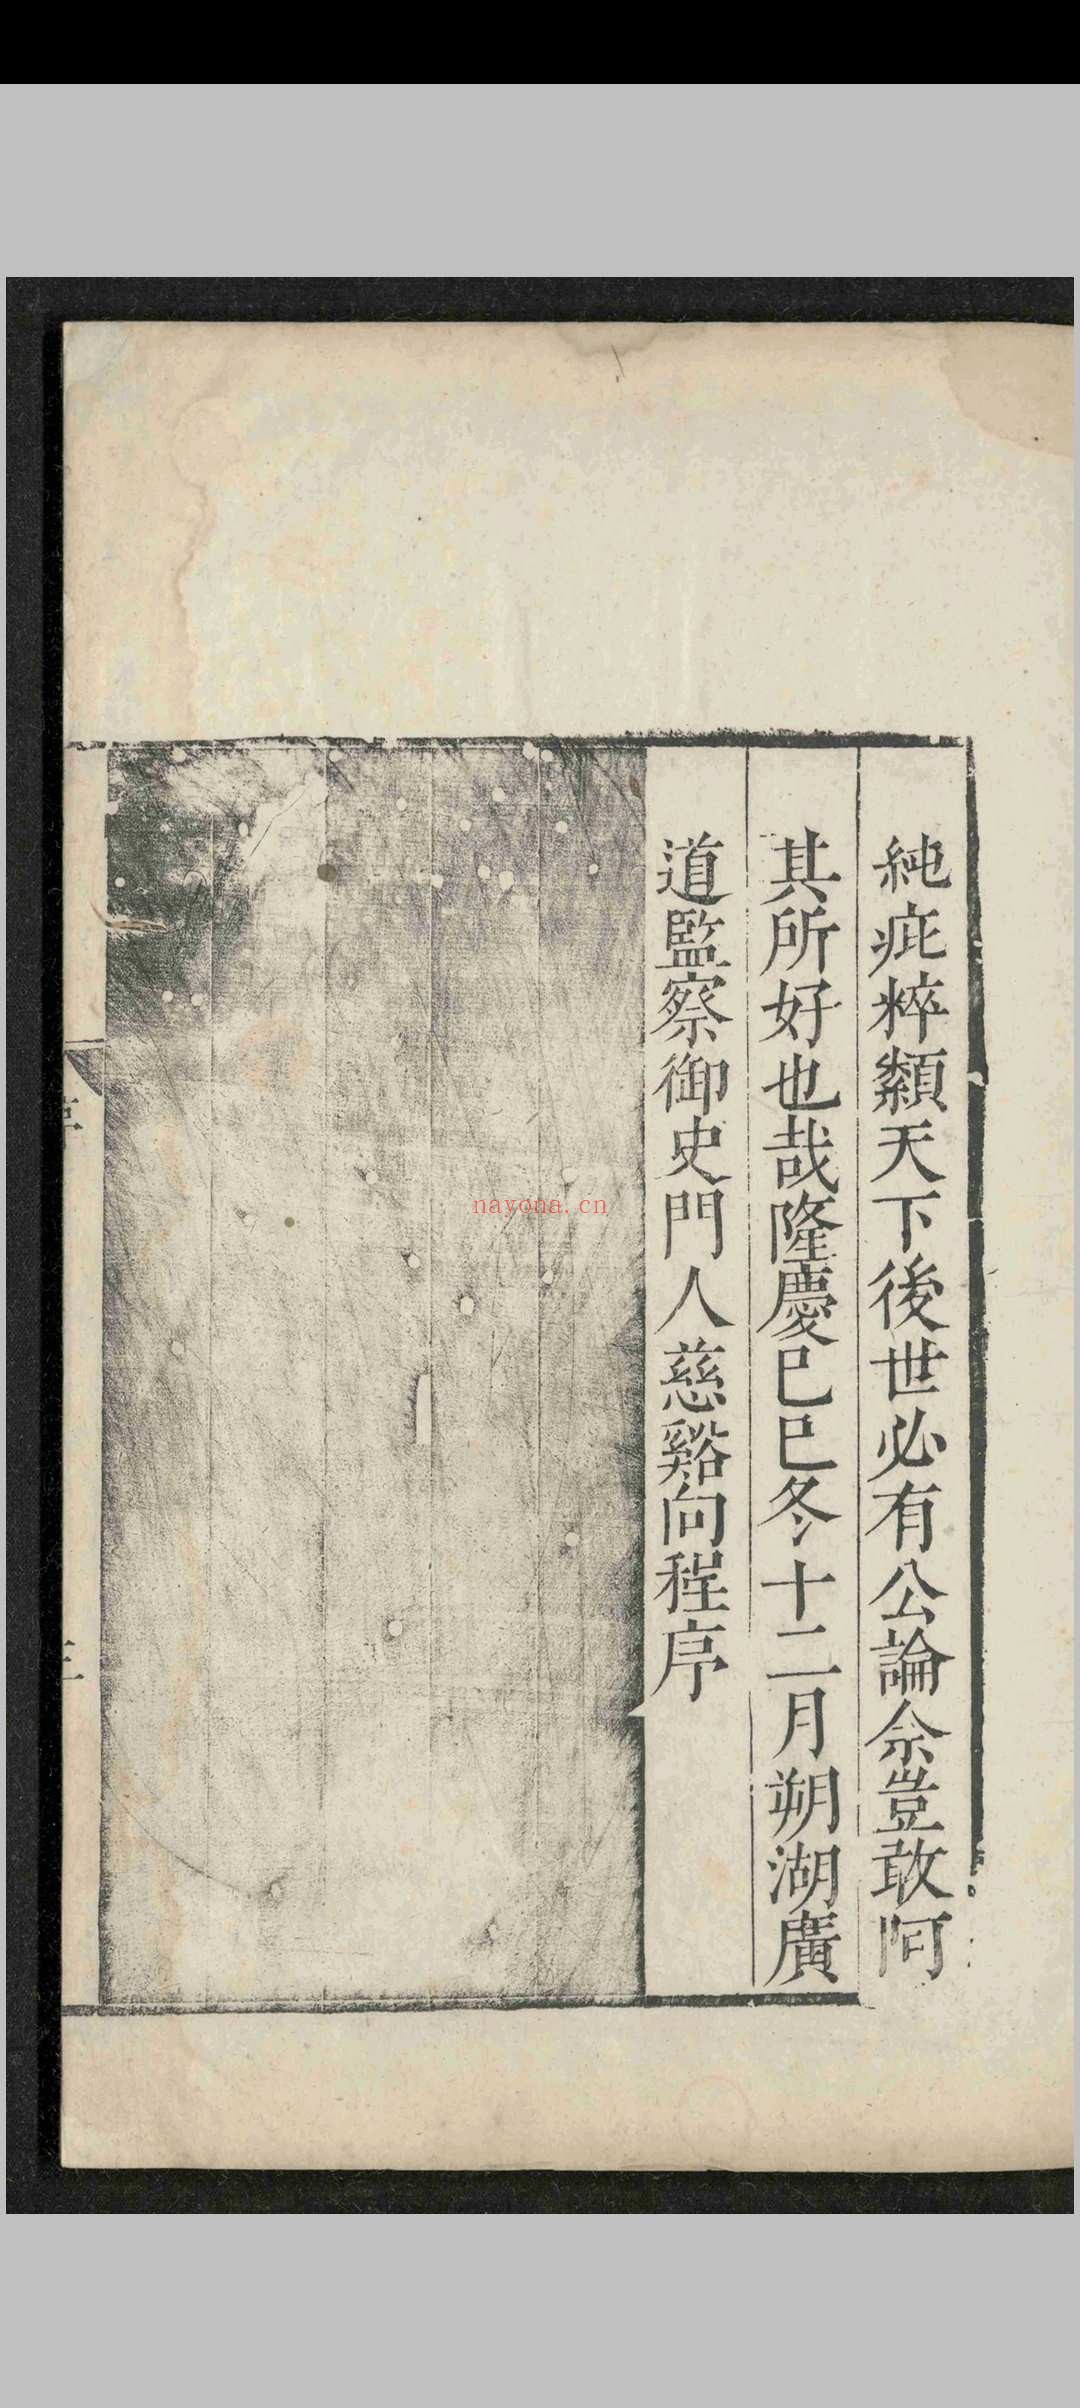 純疵粹纇天下後世必有公論余豈敢阿
其所好也哉隆慶己巳冬十二月朔湖廣
道監察御史門人慈谿向程序
nayona.cn